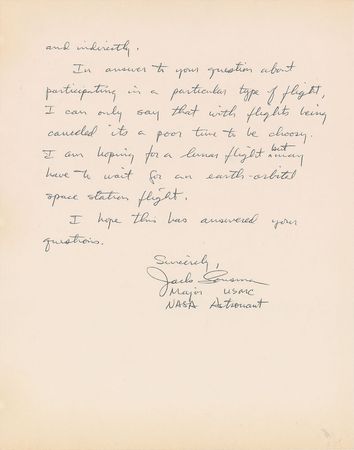 and indirectly.
In answer to your question about
participating in a particular type of flight,
I can only say that with flights being
canceled its a poor time to be choosy.
I am hoping for a lunar flight but may
have to wait for an earth-orbital
space station flight.
I hope this has answered your
questions.
Sincerely,
Jack Lousma
Major USMC
NASA Astronaut